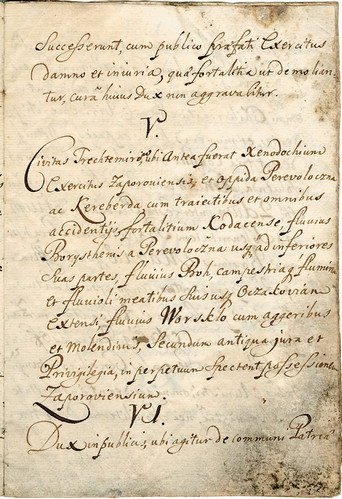 Successerunt, cum publico præfati Exercitus
damno et iniuria, quæ fortalitia ut demolian-
tur, cura huius Dux non aggravabitur.
V.
Civitas Trechtemirow, ubi Antea fuerat Xenodochium
Exercitus Zaporoviensis, et Oppida Perevoloczna
ac Kereberda cum traiectibus et omnibus
accidentijs, fortalitium Kodacense, fluvius
Borysthenis a Perevoloczna usq ad inferiores
Suas partes, fluvius Boh, campestriaq flumina
et fluvioli meatibus suis usq Oczakovian
Extensi, fluvius Worsklo cum aggeribus
et Molendinis, Secundum antiqua jura et
Privigilegia, in perpetuum Spectent possessionem
Zaporoviensium.
VI.
Dux in publicis, ubi agitur de communi Patriæ